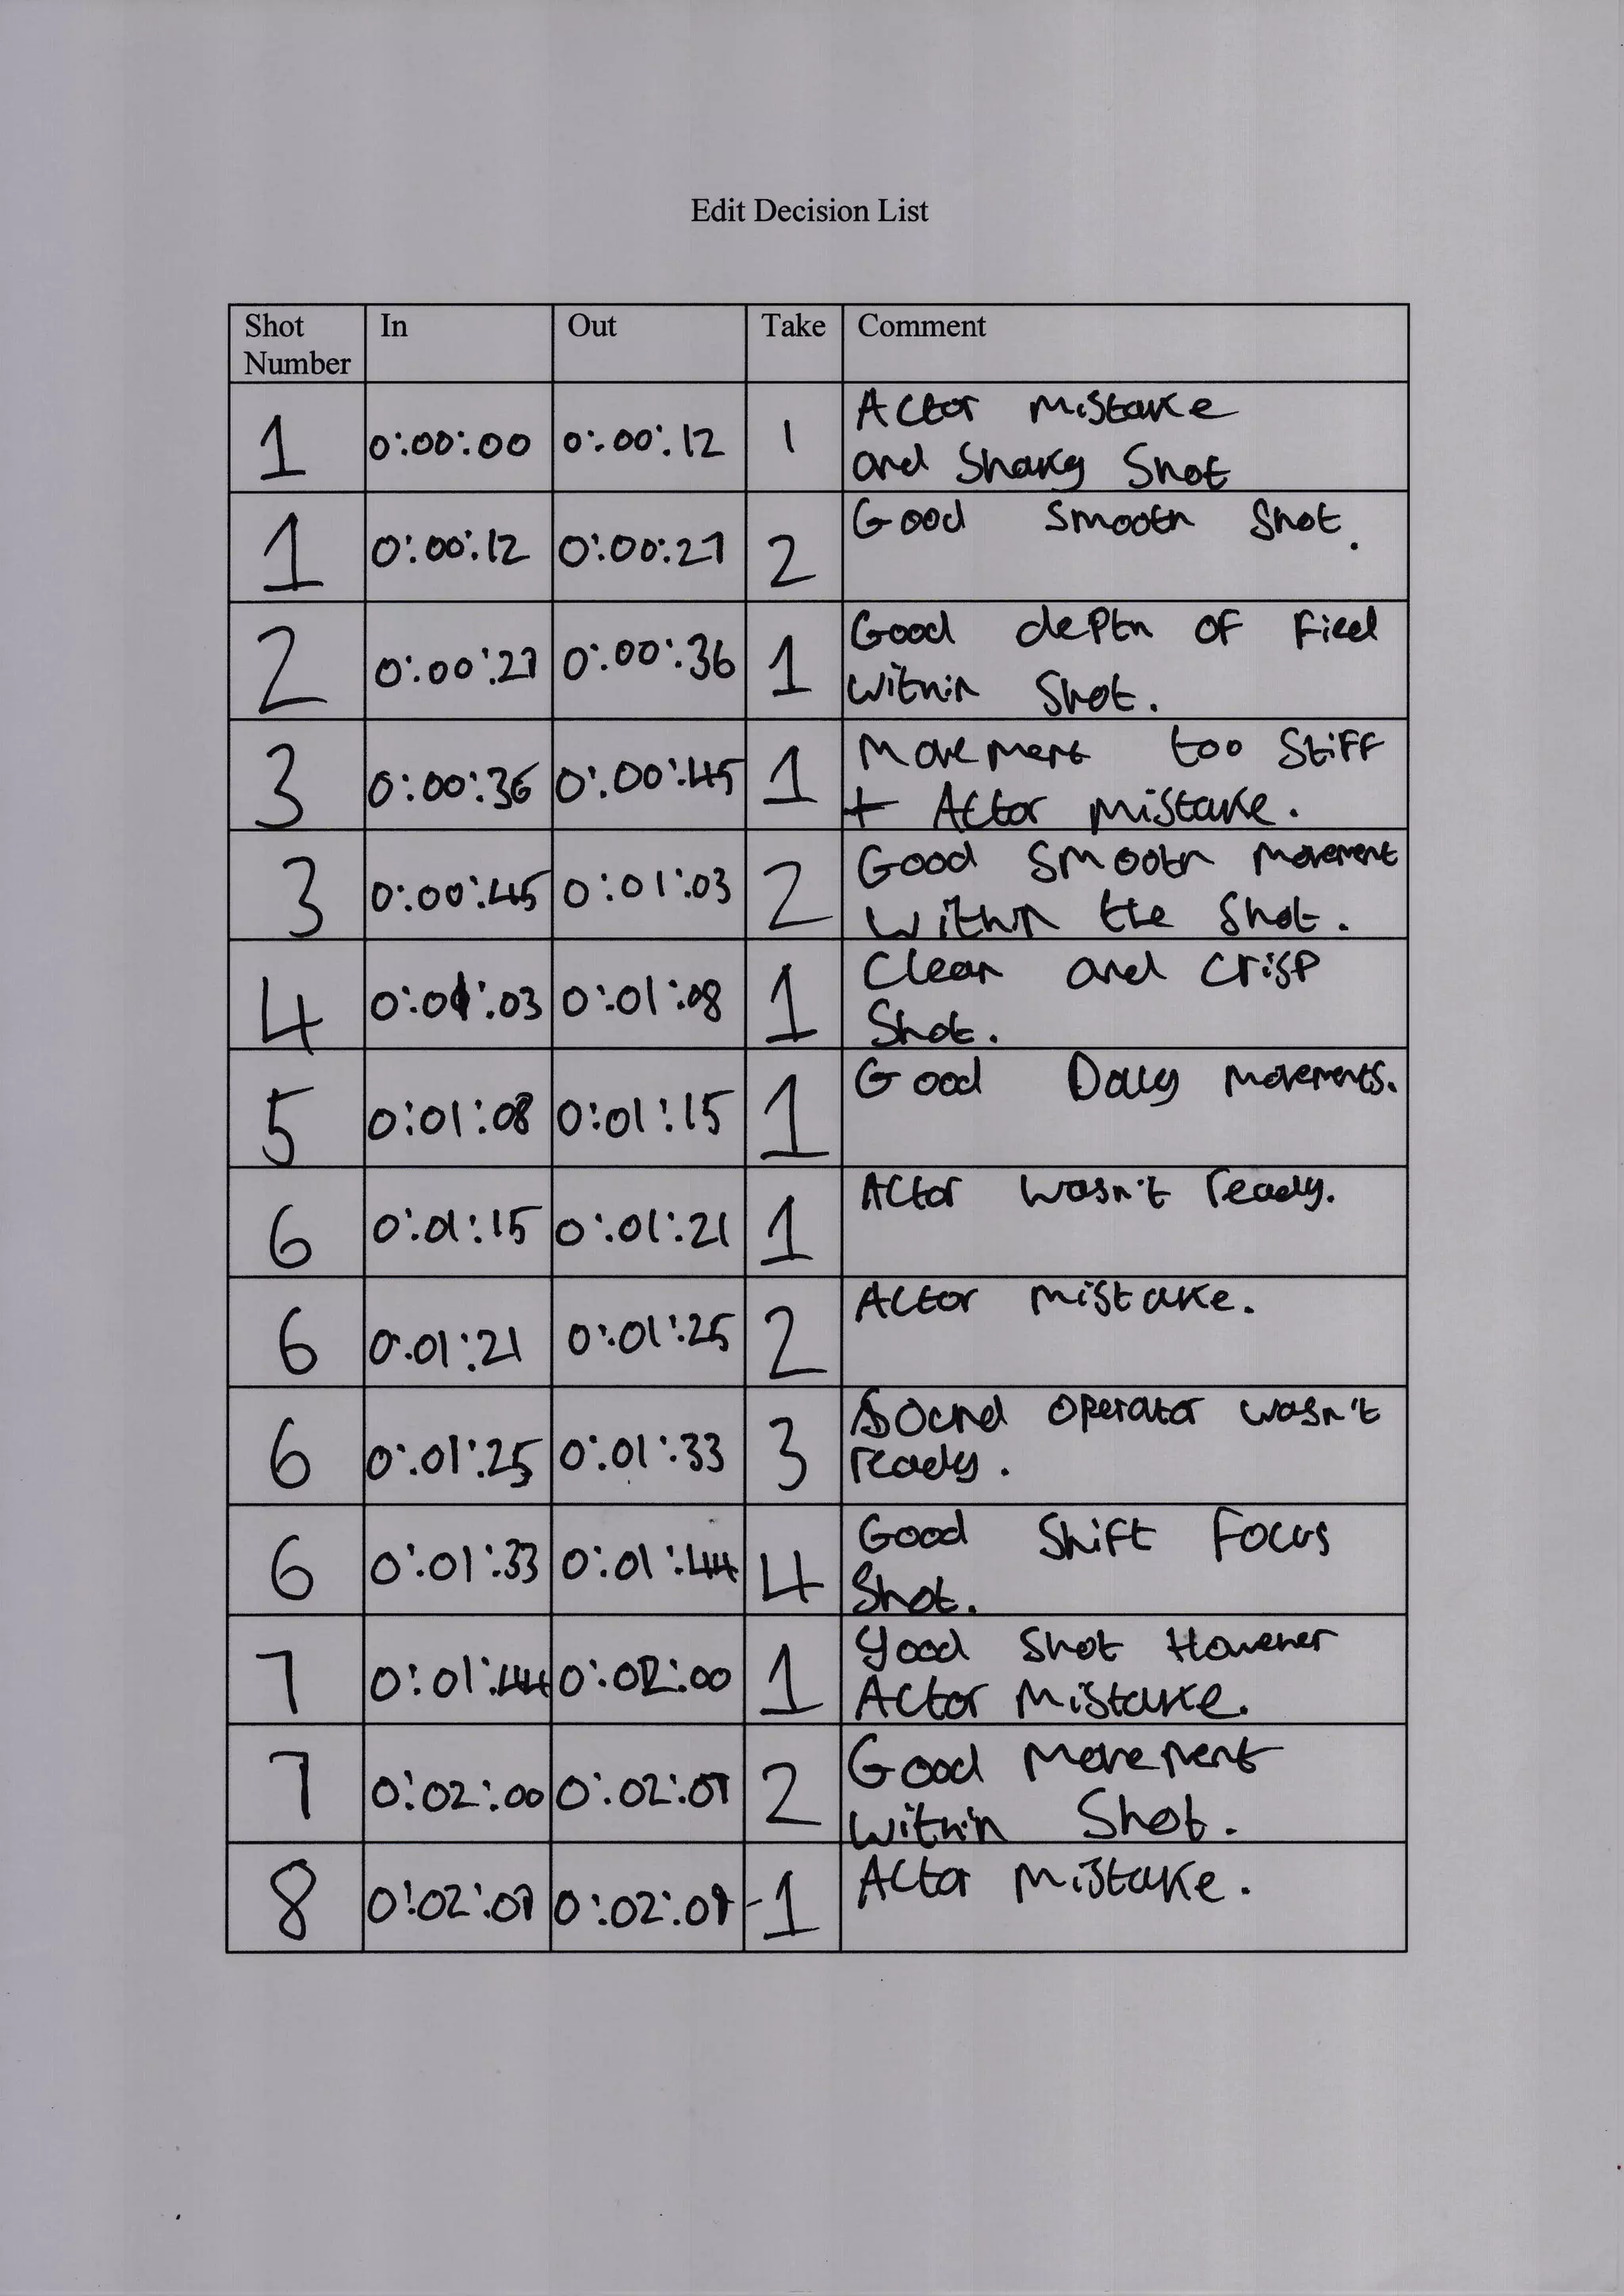 Edit Decision List
Shot Number In Out Take Comment
1 0:00:00 0:00:12 1 Actor mistake
and Shaky Shot
1 0:00:12 0:00:27 2 Good Smooth Shot.
2 0:00:27 0:00:36 1 Good depth of Field
within Shot.
3 0:00:36 0:00:45 1 Movement too Stiff
+ Actor mistake.
3 0:00:45 0:01:03 2 Good Smooth movement
within the Shot.
4 0:01:03 0:01:08 1 Clean and crisp
Shot.
5 0:01:08 0:01:15 1 Good Dolly movements.
6 0:01:15 0:01:21 1 Actor wasn't ready.
6 0:01:21 0:01:25 2 Actor mistake.
6 0:01:25 0:01:33 3 Sound operator wasn't
ready.
6 0:01:33 0:01:44 4 Good Shift Focus
Shot.
7 0:01:44 0:02:00 1 good Shot However
Actor Mistake.
7 0:02:00 0:02:07 2 Good Movement
within Shot.
8 0:02:07 1 Actor Mistake.